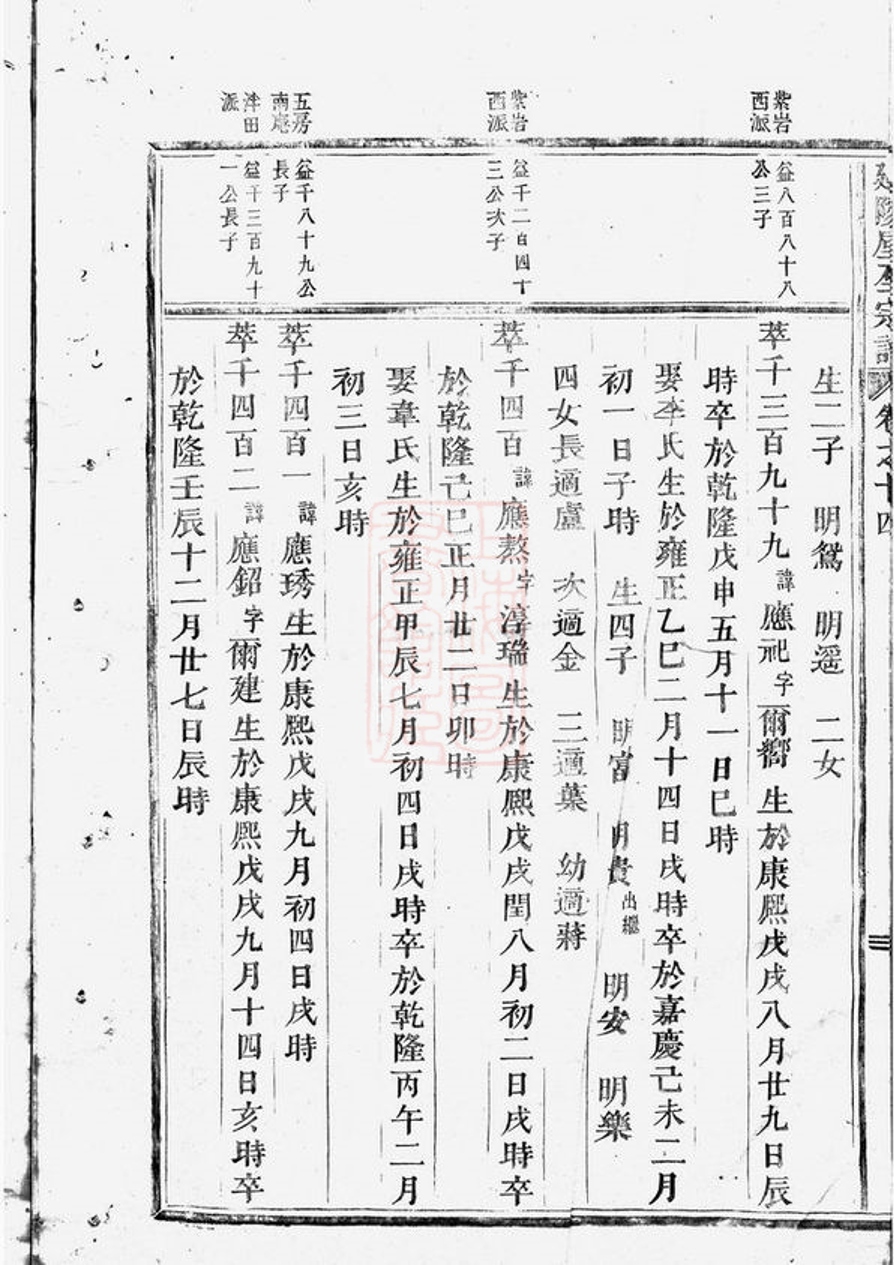 宗譜 卷之十四
三
生二子 明鴛 明遥 二女
紫岩西派
益八百八十八公三子
萃千三百九十九 諱應祀 字爾嚮 生於康熙戊戌八月廿九日辰
時卒於乾隆戊申五月十一日巳時
娶李氏生於雍正乙巳二月十四日戌時卒於嘉慶己未二月
初一日子時 生四子 明富 明貴 出繼 明安 明樂
四女長適盧 次適金 三適葉 幼適蔣
紫岩西派
益千二百四十三公次子
萃千四百 諱應熬 字淳瑞 生於康熙戊戌閏八月初二日戌時卒
於乾隆己巳正月廿二日卯時
娶韋氏生於雍正甲辰七月初四日戌時卒於乾隆丙午二月
初三日亥時
五房南庵
益千八十九公長子
萃千四百一 諱應琇生於康熙戊戌九月初四日戌時
津田派
益千三百九十一公長子
萃千四百二 諱應鉊 字爾建生於康熙戊戌九月十四日亥時卒
於乾隆壬辰十二月廿七日辰時